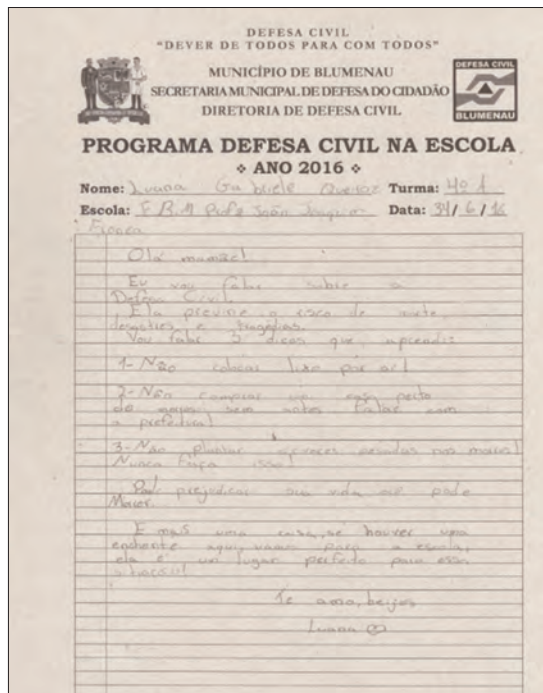 DEFESA CIVIL
"DEVER DE TODOS PARA COM TODOS"
MUNICÍPIO DE BLUMENAU
SECRETARIA MUNICIPAL DE DEFESA DO CIDADÃO
DIRETORIA DE DEFESA CIVIL
DEFESA CIVIL
BLUMENAU
PROGRAMA DEFESA CIVIL NA ESCOLA
❖ ANO 2016 ❖
Nome: Luana Gabriele Queiroz Turma: 4º 1
Escola: E.B.M Profº João Joaquim Data: / 6 / 16
Fronza
Olá mamãe!
Eu vou falar sobre a
Defesa Civil.
Ela previne o risco de morte,
desastres e tragédias.
Vou falar 3 dicas que aprendi:
1- Não colocar lixo por aí!
2- Não comprar casa perto
do sem antes falar com
a prefeitura!
3- Não plantar árvores pesadas nos morros!
Nunca faça isso!
Pode prejudicar sua vida pode
Morrer.
E mais uma coisa, se houver uma
enchente aqui, vamos para a escola,
ela é um lugar perfeito para essa
situação!
Te amo, beijos
Luana